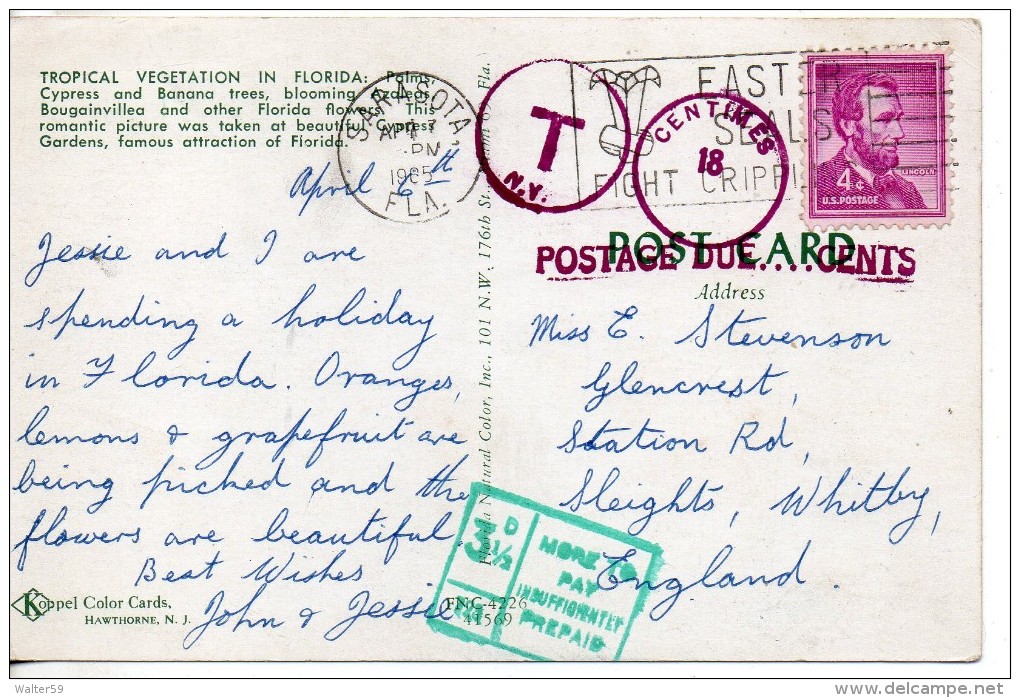 TROPICAL VEGETATION IN FLORIDA: Palms,
Cypress and Banana trees, blooming Azaleas,
Bougainvillea and other Florida flowers. This
romantic picture was taken at beautiful Cypress
Gardens, famous attraction of Florida.
SARASOTA,
APR 7
PM
1965
FLA.
T
N.Y.
CENTIMES
18
EASTER
SEALS
FIGHT CRIPPL
LINCOLN
4¢
U.S. POSTAGE
POST CARD
POSTAGE DUE....CENTS
Address
April 6th
Jessie and I are
spending a holiday
in Florida. Oranges,
lemons & grapefruit are
being picked and the
flowers are beautiful.
Best Wishes
John & Jessie
Miss E. Stevenson
Glencrest,
Station Rd,
Sleights, Whitby,
England.
Florida Natural Color, Inc., 101 N.W. 176th St., Miami 69, Fla.
3½ D
MORE TO
PAY
INSUFFICIENTLY
PREPAID
Koppel Color Cards,
HAWTHORNE, N. J.
FNC-4226
41569
Walter59
delcampe.net